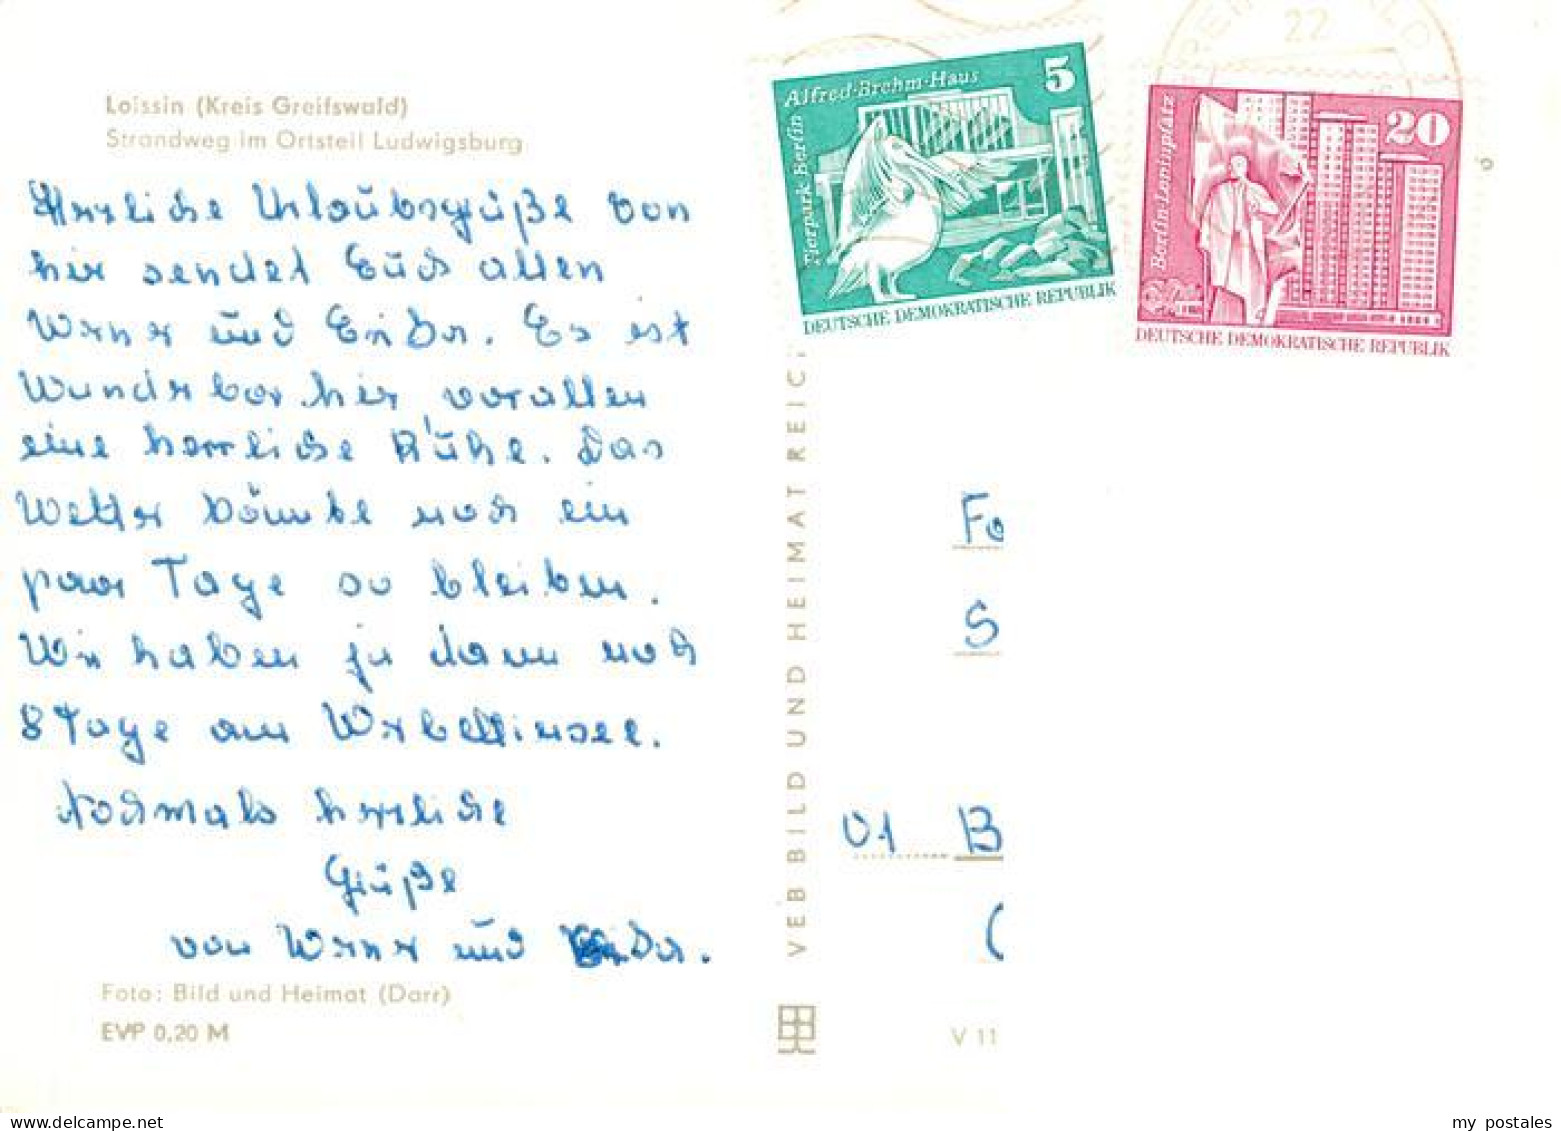 Loissin (Kreis Greifswald)
Strandweg im Ortsteil Ludwigsburg
Herzliche Urlaubsgrüße von
hier sendet Euch allen
Werner und Erika. Es ist
Wunderbar hier, vorallen
eine herrliche Ruhe. Das
Wetter könnte noch ein
paar Tage so bleiben.
Wir haben ja dann noch
8 Tage am Werbellinsee.
Nochmals herzliche
Grüße
von Werner und Erika.
Foto: Bild und Heimat (Darr)
EVP 0,20 M
VEB BILD UND HEIMAT REICH
V 11
Tierpark Berlin
Alfred-Brehm-Haus
5
DEUTSCHE DEMOKRATISCHE REPUBLIK
Berlin, Leninplatz
20
DEUTSCHE DEMOKRATISCHE REPUBLIK
22
Fo
S
01 B
my postales